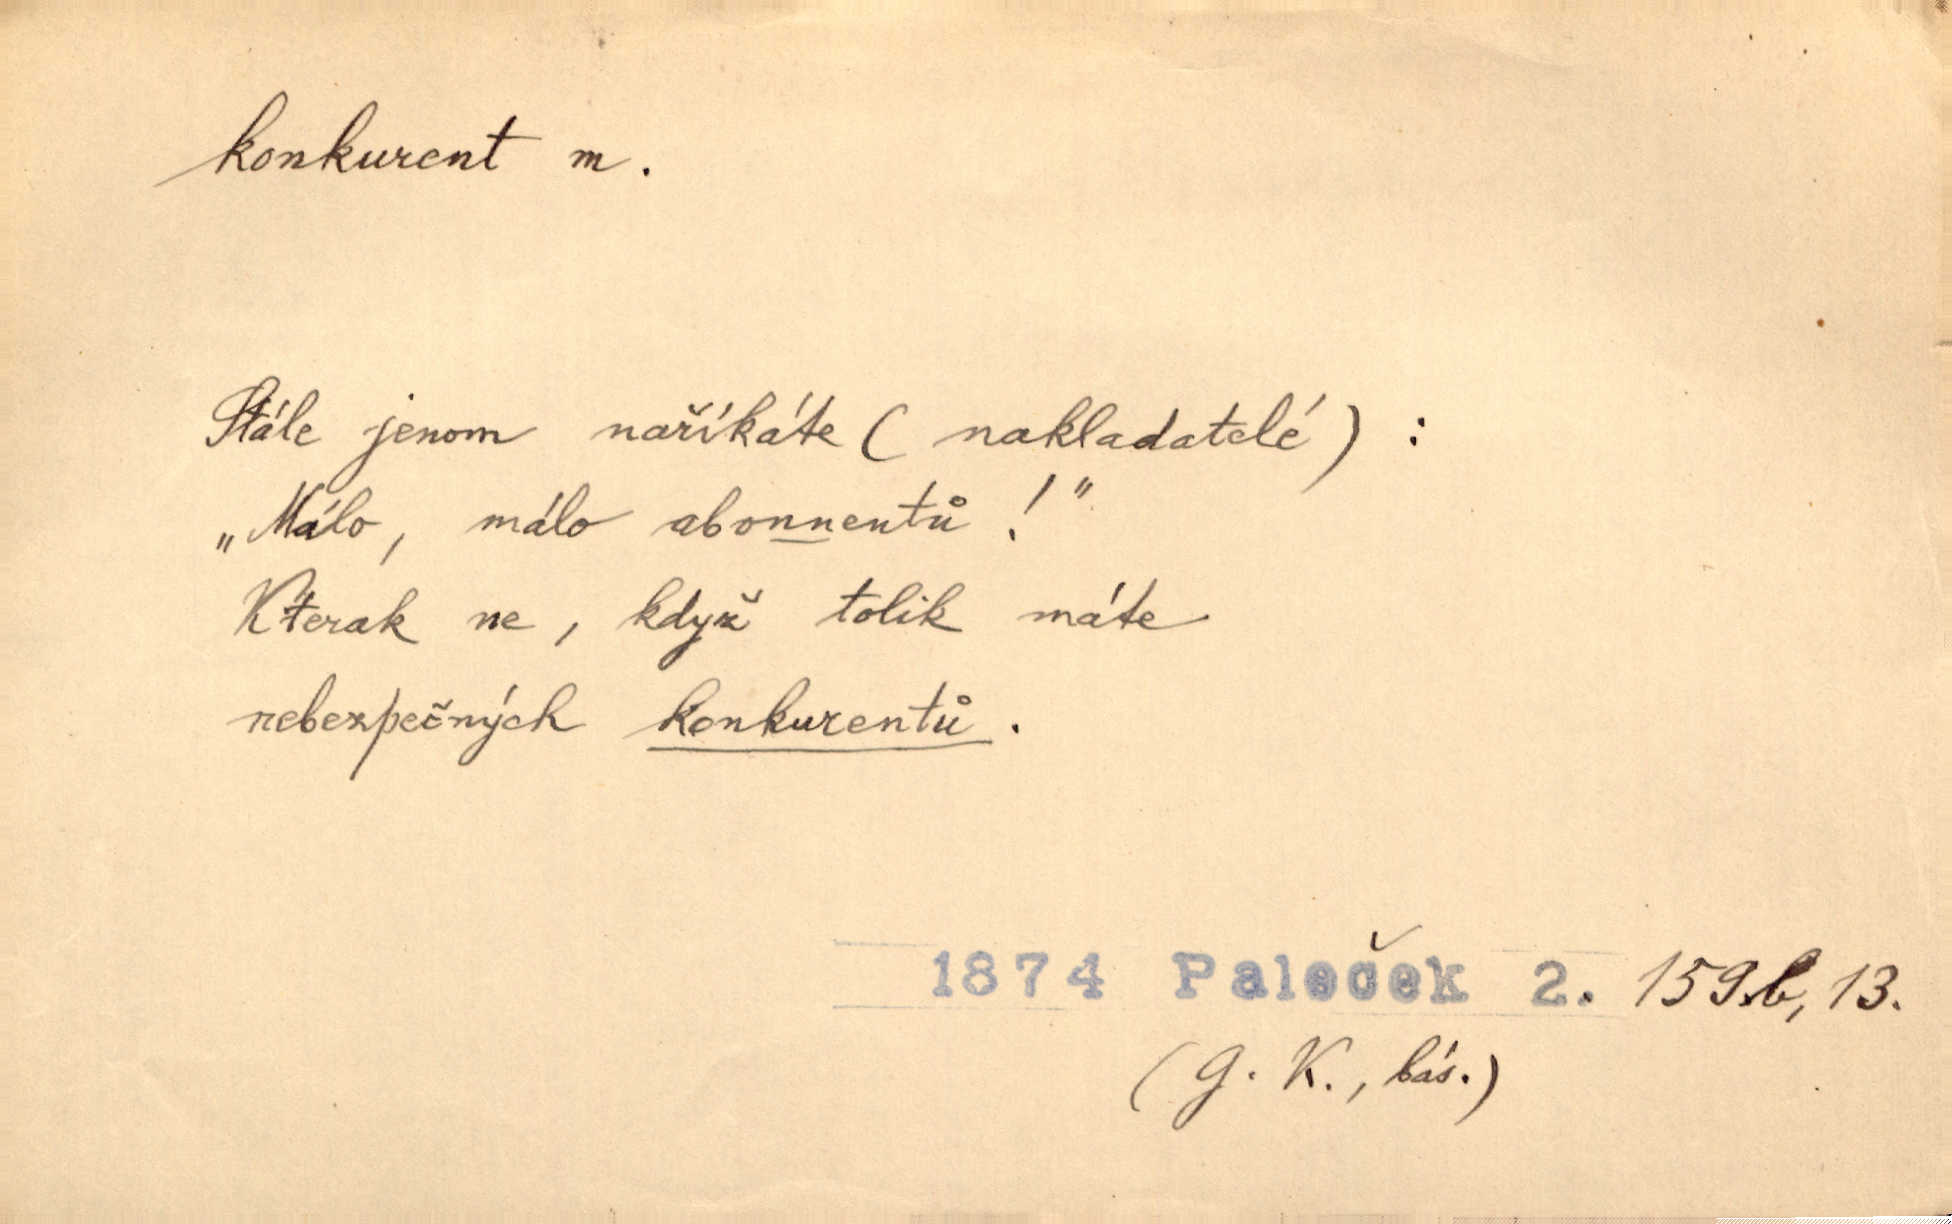 konkurent m.
Stále jenom naříkáte ( nakladatelé ) :
„Málo, málo abonnentů !"
Kterak ne, když tolik máte
nebezpečných konkurentů.
1874 Paleček 2. 159b, 13.
(G. K., bás.)